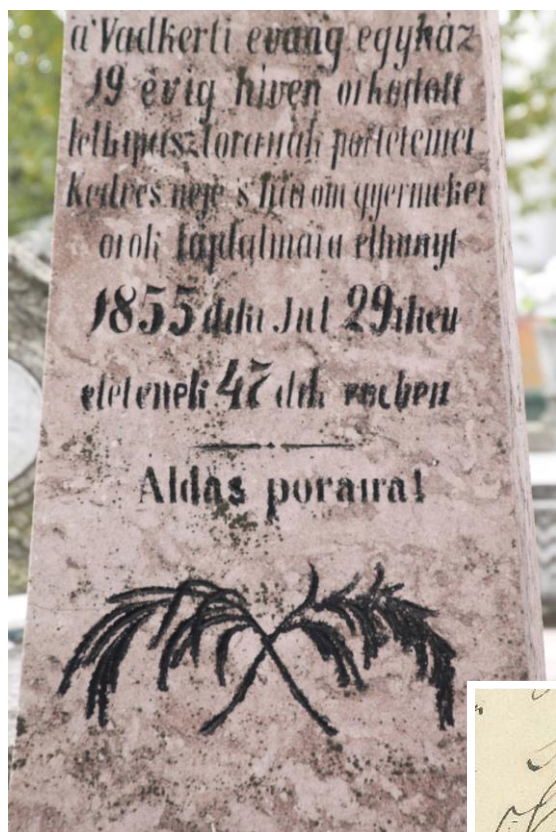 a' Vadkerti evang egyház
19 évig hiven őrködött
lelkipásztorának portetemei
Kedves neje 's három gyermekei
örök fájdalmára elhunyt
1855 diki Jul 29 dikén
életének 47 dik évében
Áldás poraira!